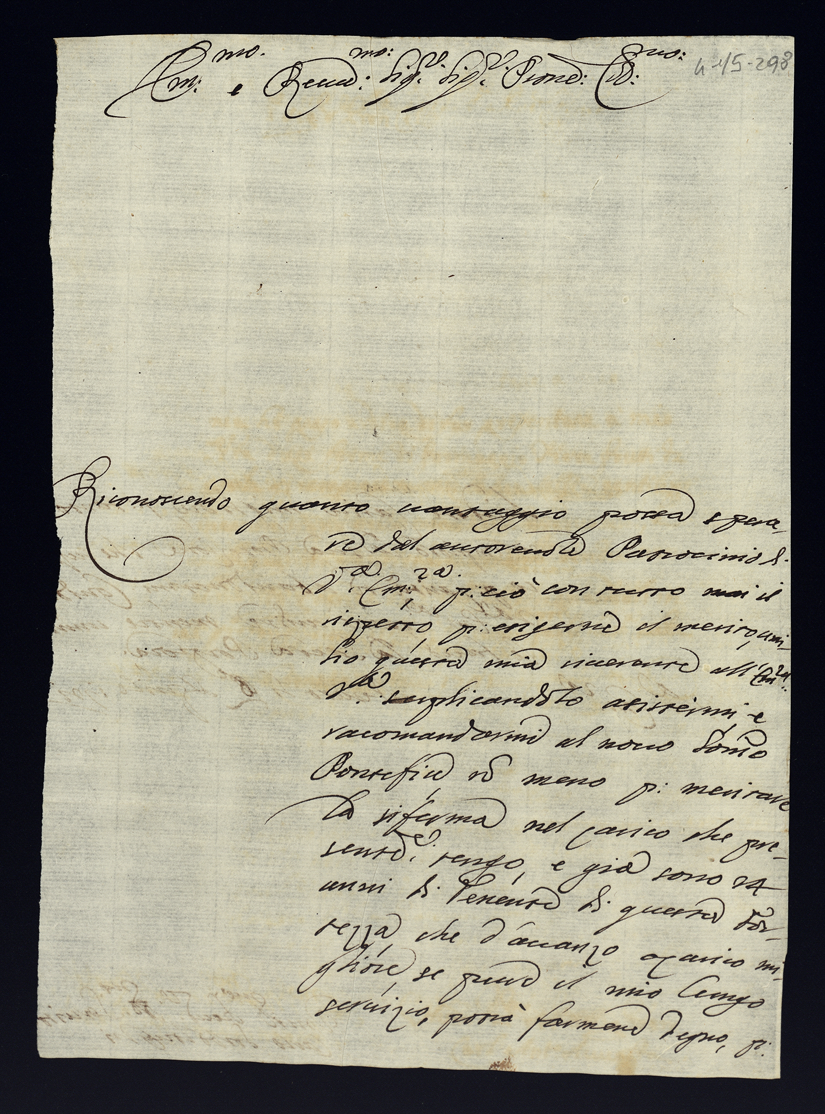 Em:mo. e Reuer:mo: Sig:r Sig:r Prone: Col:mo:
4-15-298
Riconoscendo quanto uantaggio possa spera-
re dal autoreuole Patrocinio di
V:a Em:za p: ciò con tutto il
rispetto p: esigerne il merito, umi-
lio questa mia riuerente all' Em:za
V:a suplicandola asistermi e
racomandarmi al nouo Somo
Pontefice nō meno p: meritare
la riferma nel carico che pre-
sente: tengo, e già sono 24
anni di Tenente di questa For-
tezza, che d'auanzo a carico mi-
gliore, se pure il mio lungo
seruizio, potrà farmene degno, p: